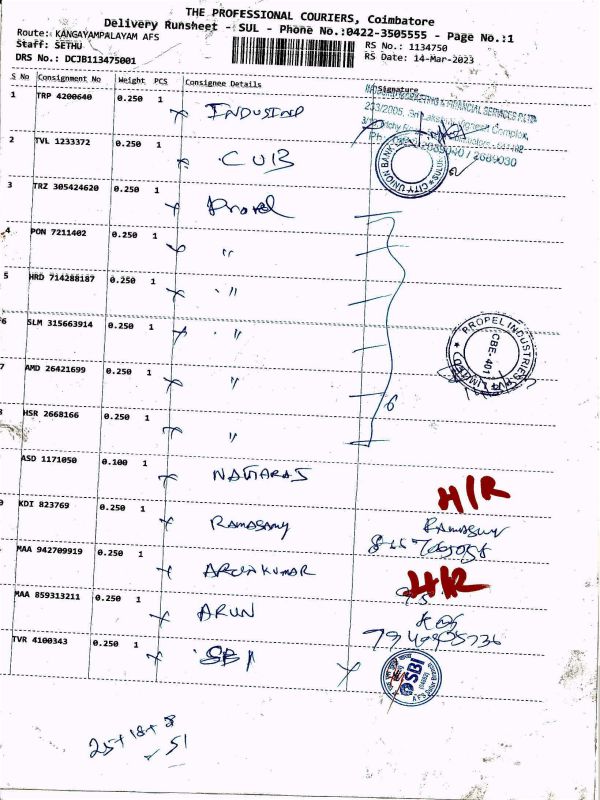 THE PROFESSIONAL COURIERS, Coimbatore
Delivery Runsheet - SUL - Phone No.:0422-3505555 - Page No.:1
Route: KANGAYAMPALAYAM AFS
Staff: SETHU
DRS No.: DCJB113475001
RS No.: 1134750
RS Date: 14-Mar-2023
S No Consignment No Weight PCS Consignee Details Signature
1 TRP 4200640 0.250 1 INDUSIND
2 TVL 1233372 0.250 1 CUB
CITY UNION BANK
3 TRZ 305424620 0.250 1
4 PON 7211402 0.250 1 "
5 HRD 714288187 0.250 1 "
6 SLM 315663914 0.250 1 "
PROPEL INDUSTRIES PVT LIMITED
CBE-401
7 AMD 26421699 0.250 1 "
HSR 2668166 0.250 1 " 6
ASD 1171050 0.100 1 NATTARAJ H/R
KDI 823769 0.250 1 RAMASAMY
MAA 942709919 0.250 1 H/R
MAA 859313211 0.250 1 ARUN
TVR 4100343 0.250 1 SBI SBI
25+18+8
51